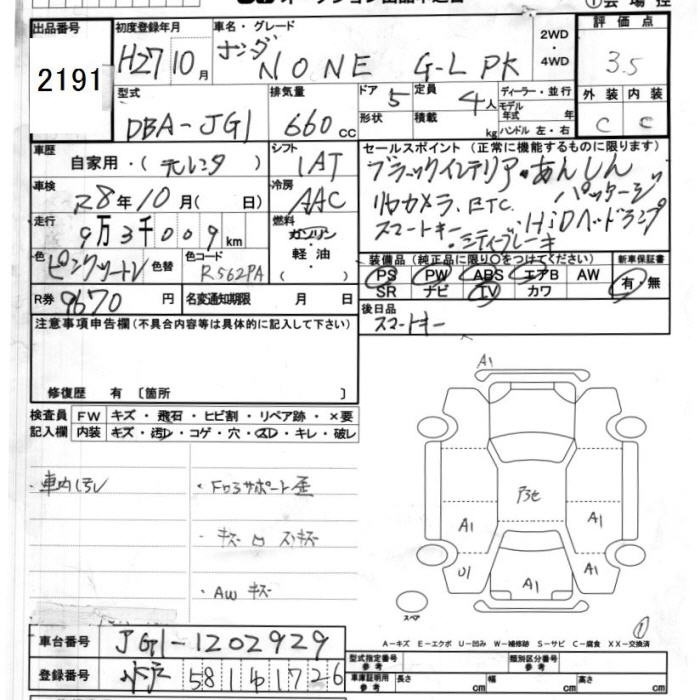 オークション出品申込書
出品番号 初度登録年月 車名・グレード 評価点
2191 H27 10月 ホンダ N ONE G-L PK 2WD ・ 4WD 3.5
型式 排気量 ドア 5 定員 4人 ディーラー・並行 外装 内装
DBA-JG1 660cc 形状 積載 kg モデル年式 年 ハンドル 左・右 C C
車歴 自家用・(元レンタ) シフト 1AT セールスポイント (正常に機能するものに限ります)
車検 R8年10月( 日) 冷房 AAC ブラックインテリア・あんしんパッケージ
走行 9万3千009km 燃料 ガソリン・軽油・( ) リヤカメラ、ETC.
スマートキー・シティブレーキ HiDヘッドランプ
色 色替 色コード R562PA 装備品 (純正品に限り○をつけてください) 新車保証書
PS PW ABS エアB AW 有・無
SR ナビ TV カワ
R券 9670円 名変通知期限 月 日 後日品
スマートキー
注意事項申告欄(不具合内容等は具体的に記入して下さい)
修復歴 有 〔箇所 〕
検査員 FW キズ・飛石・ヒビ割・リペア跡・×要
記入欄 内装 キズ・汚レ・コゲ・穴・スレ・キレ・破レ
・車内汚レ ・Fロアサポート歪
・キズ
・AW キズ
A1
アセ
A1 A1
U1 A1 A1
スペア
①
A-キズ E-エクボ U-凹み W-補修跡 S-サビ C-腐食 XX-交換済
車台番号 JG1-1202929 型式指定番号 参考 類別区分番号 参考
登録番号 水戸 581 1726 車庫証明用 参考 長さ cm 幅 cm 高さ cm